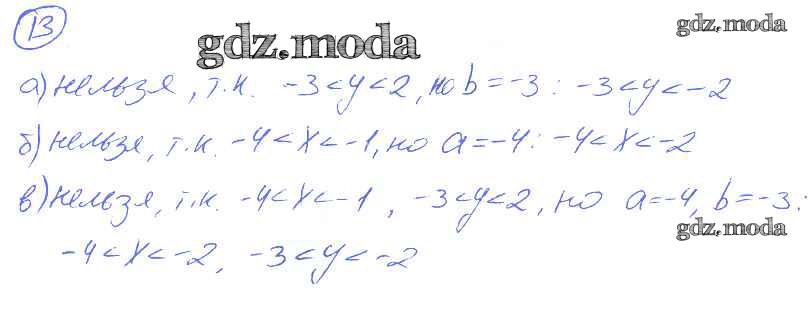 13
gdz.moda
gdz.moda
а) нельзя, т.к. -3<y<2, но b=-3: -3<y<-2
б) нельзя, т.к. -4<x<-1, но a=-4: -4<x<-2
в) нельзя, т.к. -4<x<-1, -3<y<2, но a=-4, b=-3:
gdz.moda
-4<x<-2, -3<y<-2